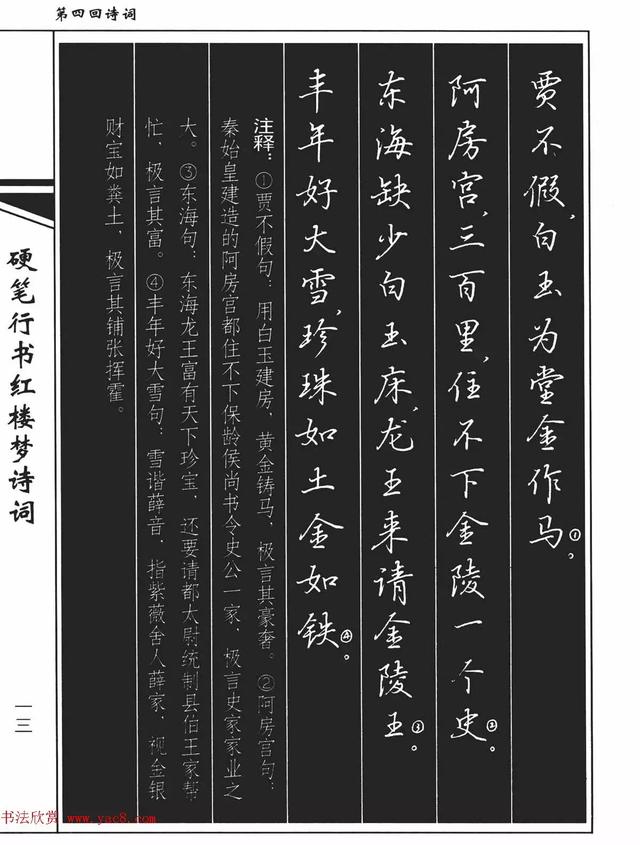 第四回诗词
贾不假,白玉为堂金作马①。
阿房宫,三百里,住不下金陵一个史②。
东海缺少白玉床,龙王来请金陵王③。
丰年好大雪,珍珠如土金如铁④。
注释：①贾不假句：用白玉建房、黄金铸马，极言其豪奢。②阿房宫句：
秦始皇建造的阿房宫都住不下保龄侯尚书令史公一家，极言史家家业之
大。③东海句：东海龙王富有天下珍宝，还要请都太尉统制县伯王家帮
忙，极言其富。④丰年好大雪句：雪谐薛音，指紫薇舍人薛家，视金银
财宝如粪土，极言其铺张挥霍。
硬笔行书红楼梦诗词
一三
书法欣赏 www.yac8.com